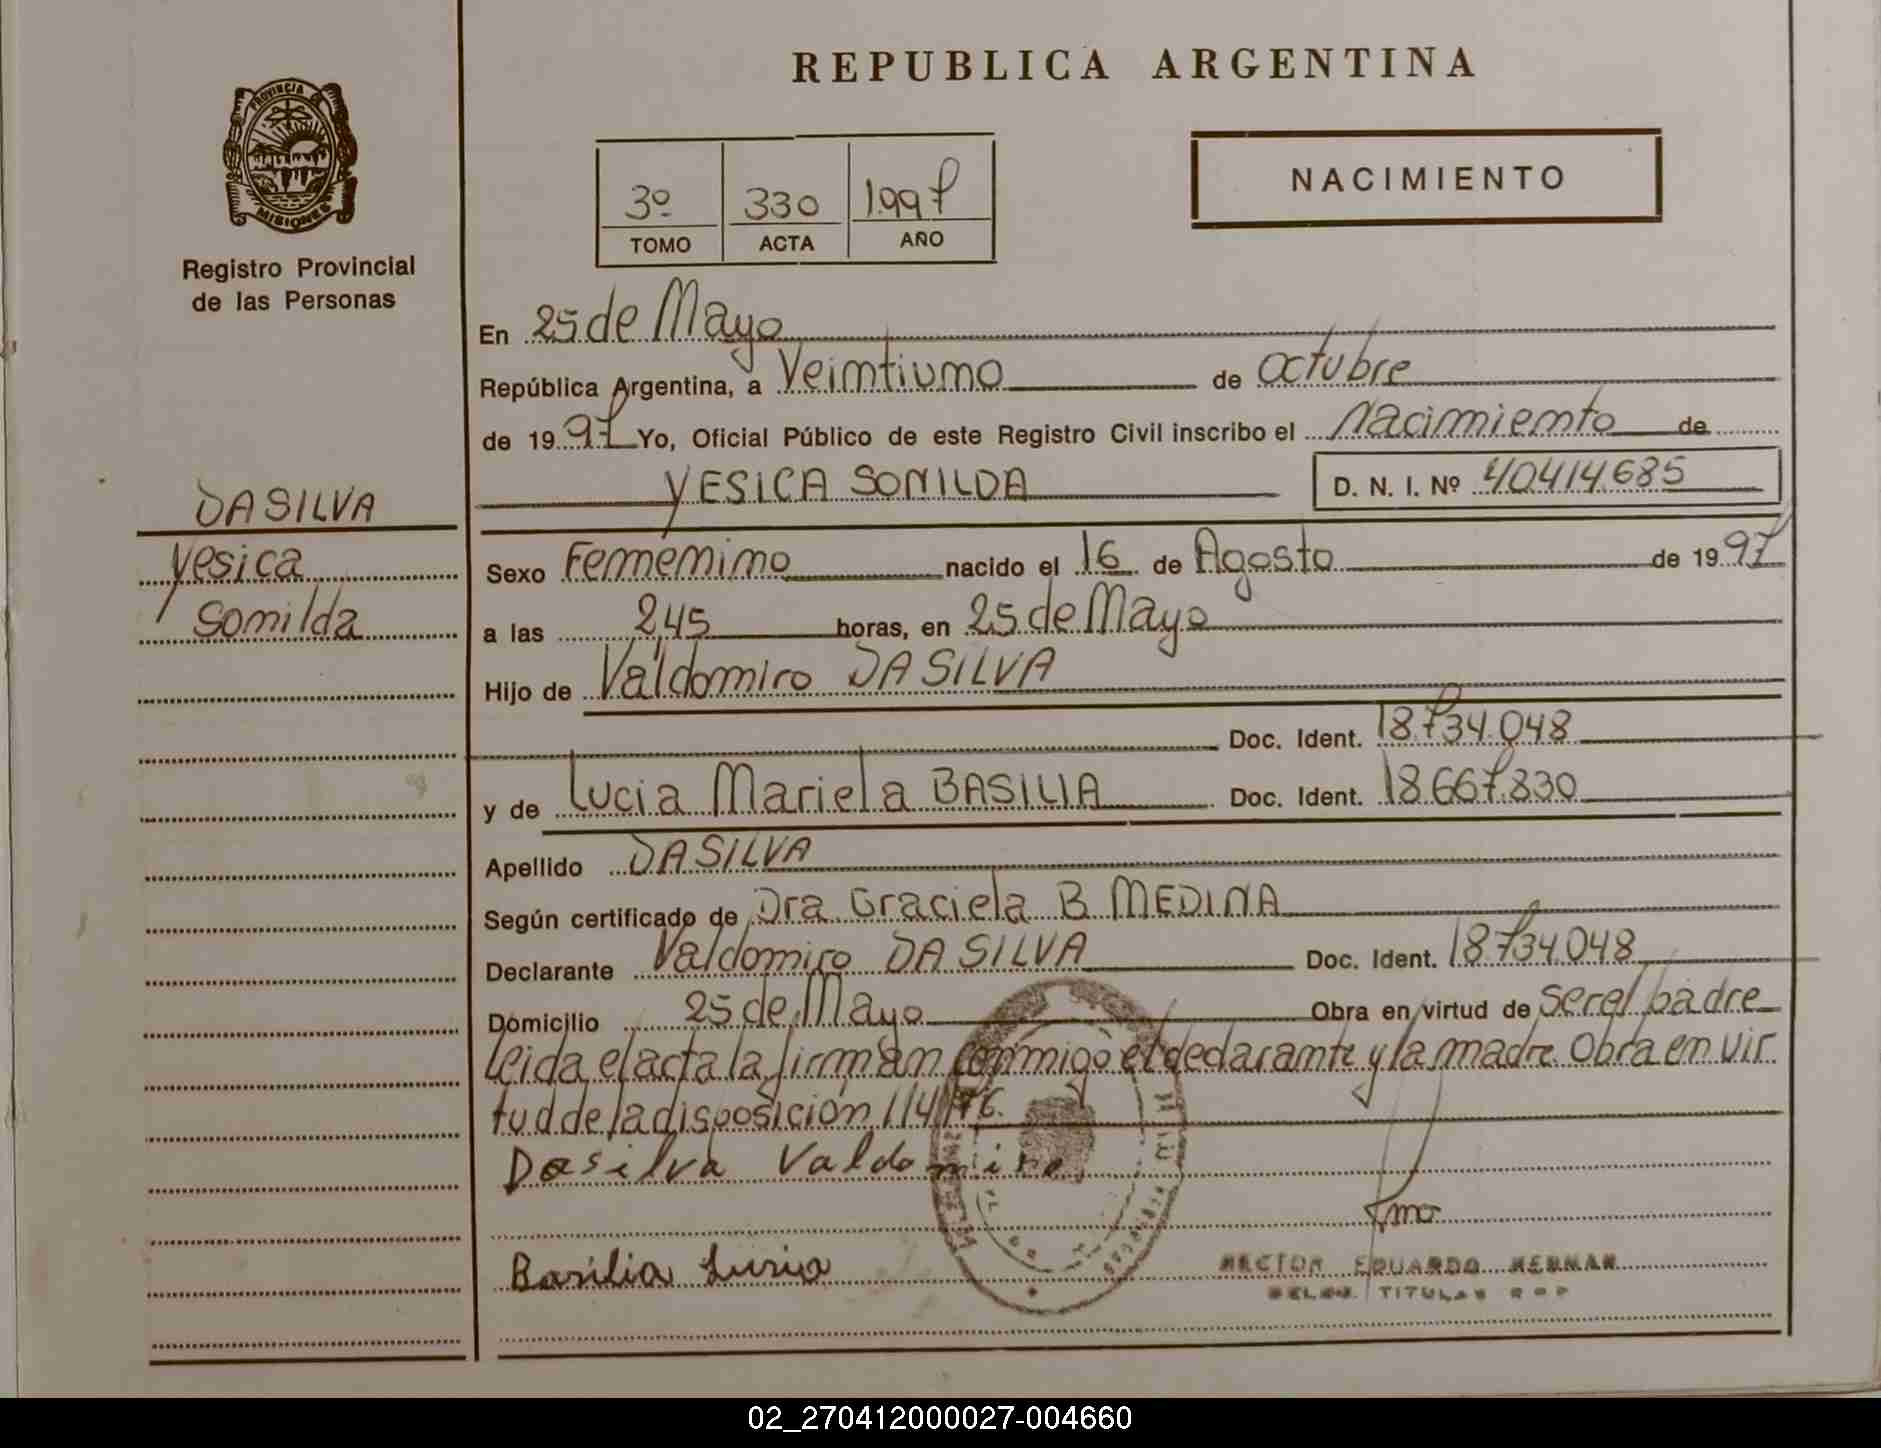 REPUBLICA ARGENTINA
PROVINCIA DE
MISIONES
Registro Provincial
de las Personas
3º 330 1.997
TOMO ACTA AÑO
NACIMIENTO
En 25 de Mayo
República Argentina, a Veintiuno de octubre
de 1997 Yo, Oficial Público de este Registro Civil inscribo el Nacimiento de
YESICA SONILDA D. N. I. Nº 40.414.685
DA SILVA
Yesica
Sonilda
Sexo Femenino nacido el 16 de Agosto de 1997
a las 2,45 horas, en 25 de Mayo
Hijo de Valdomiro DA SILVA
Doc. Ident. 18.734.048
y de Lucia Mariela BASILIA Doc. Ident. 18.667.830
Apellido DA SILVA
Según certificado de Dra Graciela B MEDINA
Declarante Valdomiro DA SILVA Doc. Ident. 18.734.048
Domicilio 25 de Mayo Obra en virtud de ser el padre
Leida el acta la firman conmigo el declarante y la madre. Obra en vir
tud de la disposición 114/76.
Dasilva Valdomiro
Basilia Lusia
HECTOR EDUARDO HERMAN
DELEG. TITULAR R D P
02_270412000027-004660